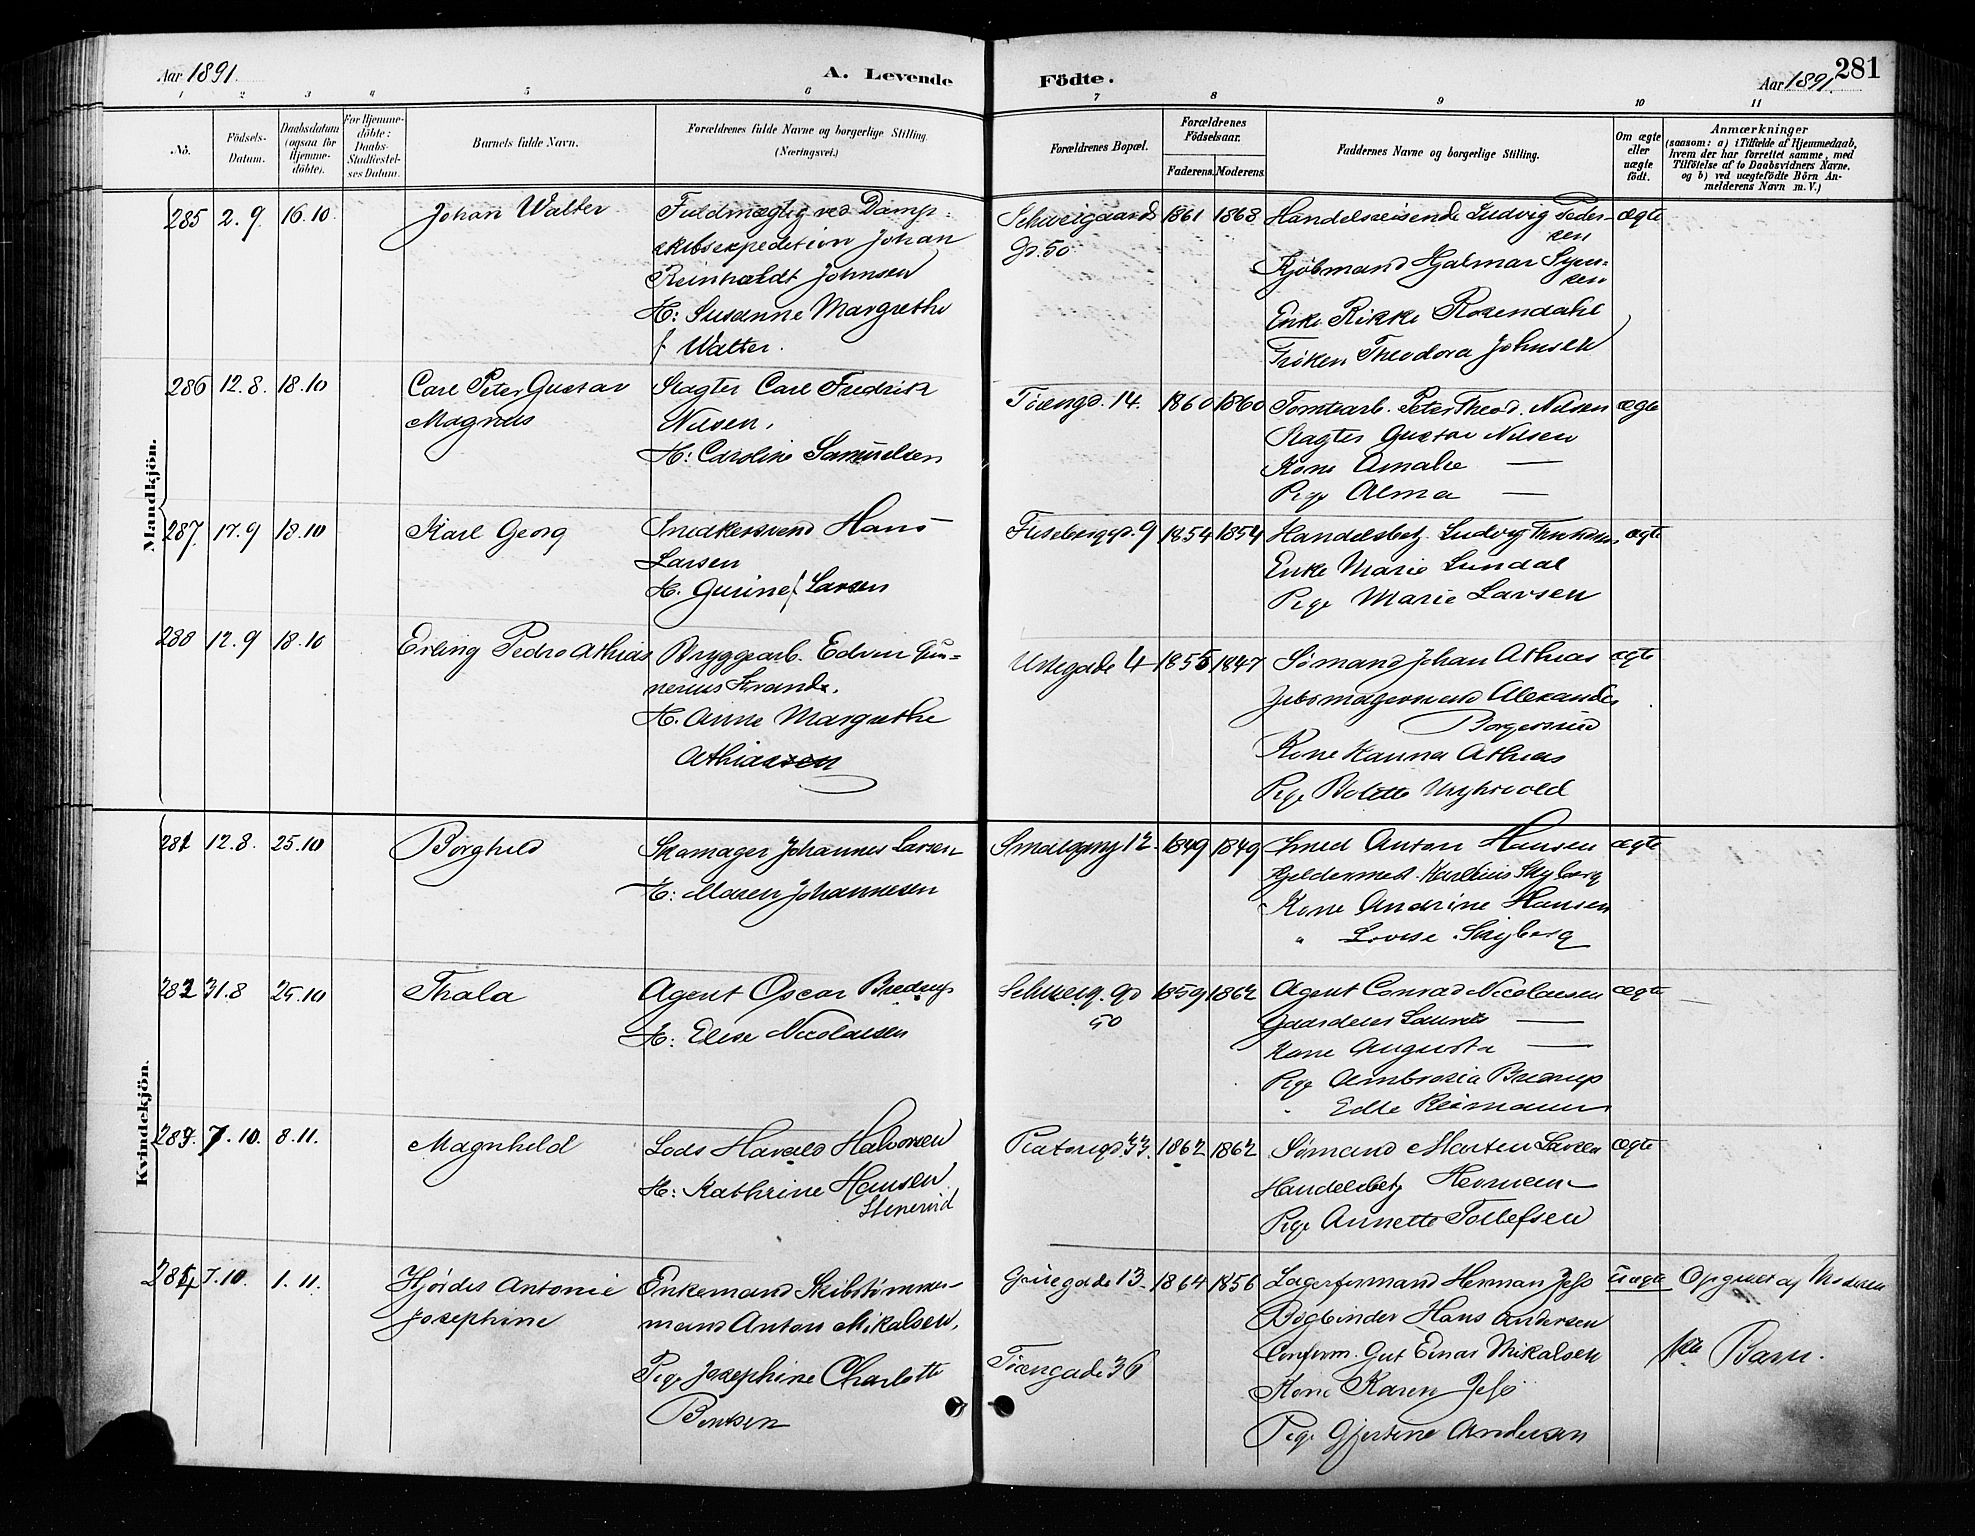 Aar 1891.
A. Levende
Födte.
Aar 1891.
281
1 2 3 4 5 6 7 8 9 10 11
No.
Födsels-Datum.
Daabsdatum (ogsaa for Hjemmedöbte).
For Hjemmedöbte: Daabs-Stadfæstelses Datum.
Barnets fulde Navn.
Forældrenes fulde Navne og borgerlige Stilling.
(Næringsvei.)
Forældrenes Bopæl.
Forældrenes Födselsaar.
Faderens.
Moderens.
Faddernes Navne og borgerlige Stilling.
Om ægte eller uægte födt.
Anmærkninger
(saasom: a) i Tilfælde af Hjemmedaab, hvem der har forrettet samme, med Tilföielse af to Daabsvidners Navne. og b) ved uægtefödte Börn Anmelderens Navn m. V.)
Mandkjön.
285 2.9. 16.10. Johan Walter Fuldmægtig ved Damp-
skibsexpedition Johan
Reinholdt Johnsen
H: Susanne Margrethe
f Walter.
Schweigaards
gd. 50
1861 1868 Handelsreisende Ludvig Peder-
sen
Kjøbmand Hjalmar
Enke Rikke Rosendahl
Frøken Theodora Johnsen
ægte
286 12.8. 18.10 Carl Peter Gustav
Magnus
Slagter Carl Fredrik
Nilsen,
H: Caroline Samuelsen
Tøiengd. 14. 1860 1860 Tomtearb. Peter Theod. Nilsen
Slagter Gustav Nilsen
Kone Amalie —
Pige Alma —
ægte
287. 17.9 18.10 Karl Georg Snedkersvend Hans
Larsen
H. Gurine f. Larsen
Flisebergd. 9 1854 1854 Handelsbetj. Ludvig
Enke Marie Lundal
Pige Marie Larsen
ægte
288 12.9 18.10 Erling Pedro Athias Bryggearb. Edvin Gun-
nerius Strand.
H. Anne Margrethe
Athiassen
Urtegade 4 1855 1847 Sømand Johan Athias
Alexander
Kone Hanna Athias
Pige Bolette
ægte
Kvindekjön.
281 12.8. 25.10 Borghild Skomager Johannes Larsen
H: Maren Johannesen
Smalgang 12. 1849 1849 Smed Anton Hansen
Gjeldermest. Karelius Skyberg
Kone Andrine Hansen
" Lovise Skyberg
ægte
282 31.8 25.10 Thala Agent Oscar Bredrup
H: Elise Nicolaisen
Schweig. gd
50
1859 1862 Agent Conrad Nicolaisen
Gaardeier Laurits —
Kone Augusta —
Pige Ambrosia Bredrup
" Edle Reimann
ægte
283. 7.10. 8.11. Magnhild Lods Harald Halvorsen
H: Kathrine Hansen
Stenervd
Platousgd. 33. 1862 1862 Sømand Morten Larsen
Handelsbetj Hermen
Pige Annette Tollefsen
ægte
284 7.10. 1.11. Hjørdis Antonie
Josephine
Enkemand Skibstømmer-
mand Anton Mikalsen,
Pige Josephine Charlotte
Bentsen
Grüegade 13.
Tøiengade 36
1864 1856 Lagerformand Herman
Bogbinder Hans Andersen
Confirm. Gut Einar Mikalsen
Kone Karen
Pige Gjertine Andersen
uægte
Opgivet af Moderen
1ste Barn.